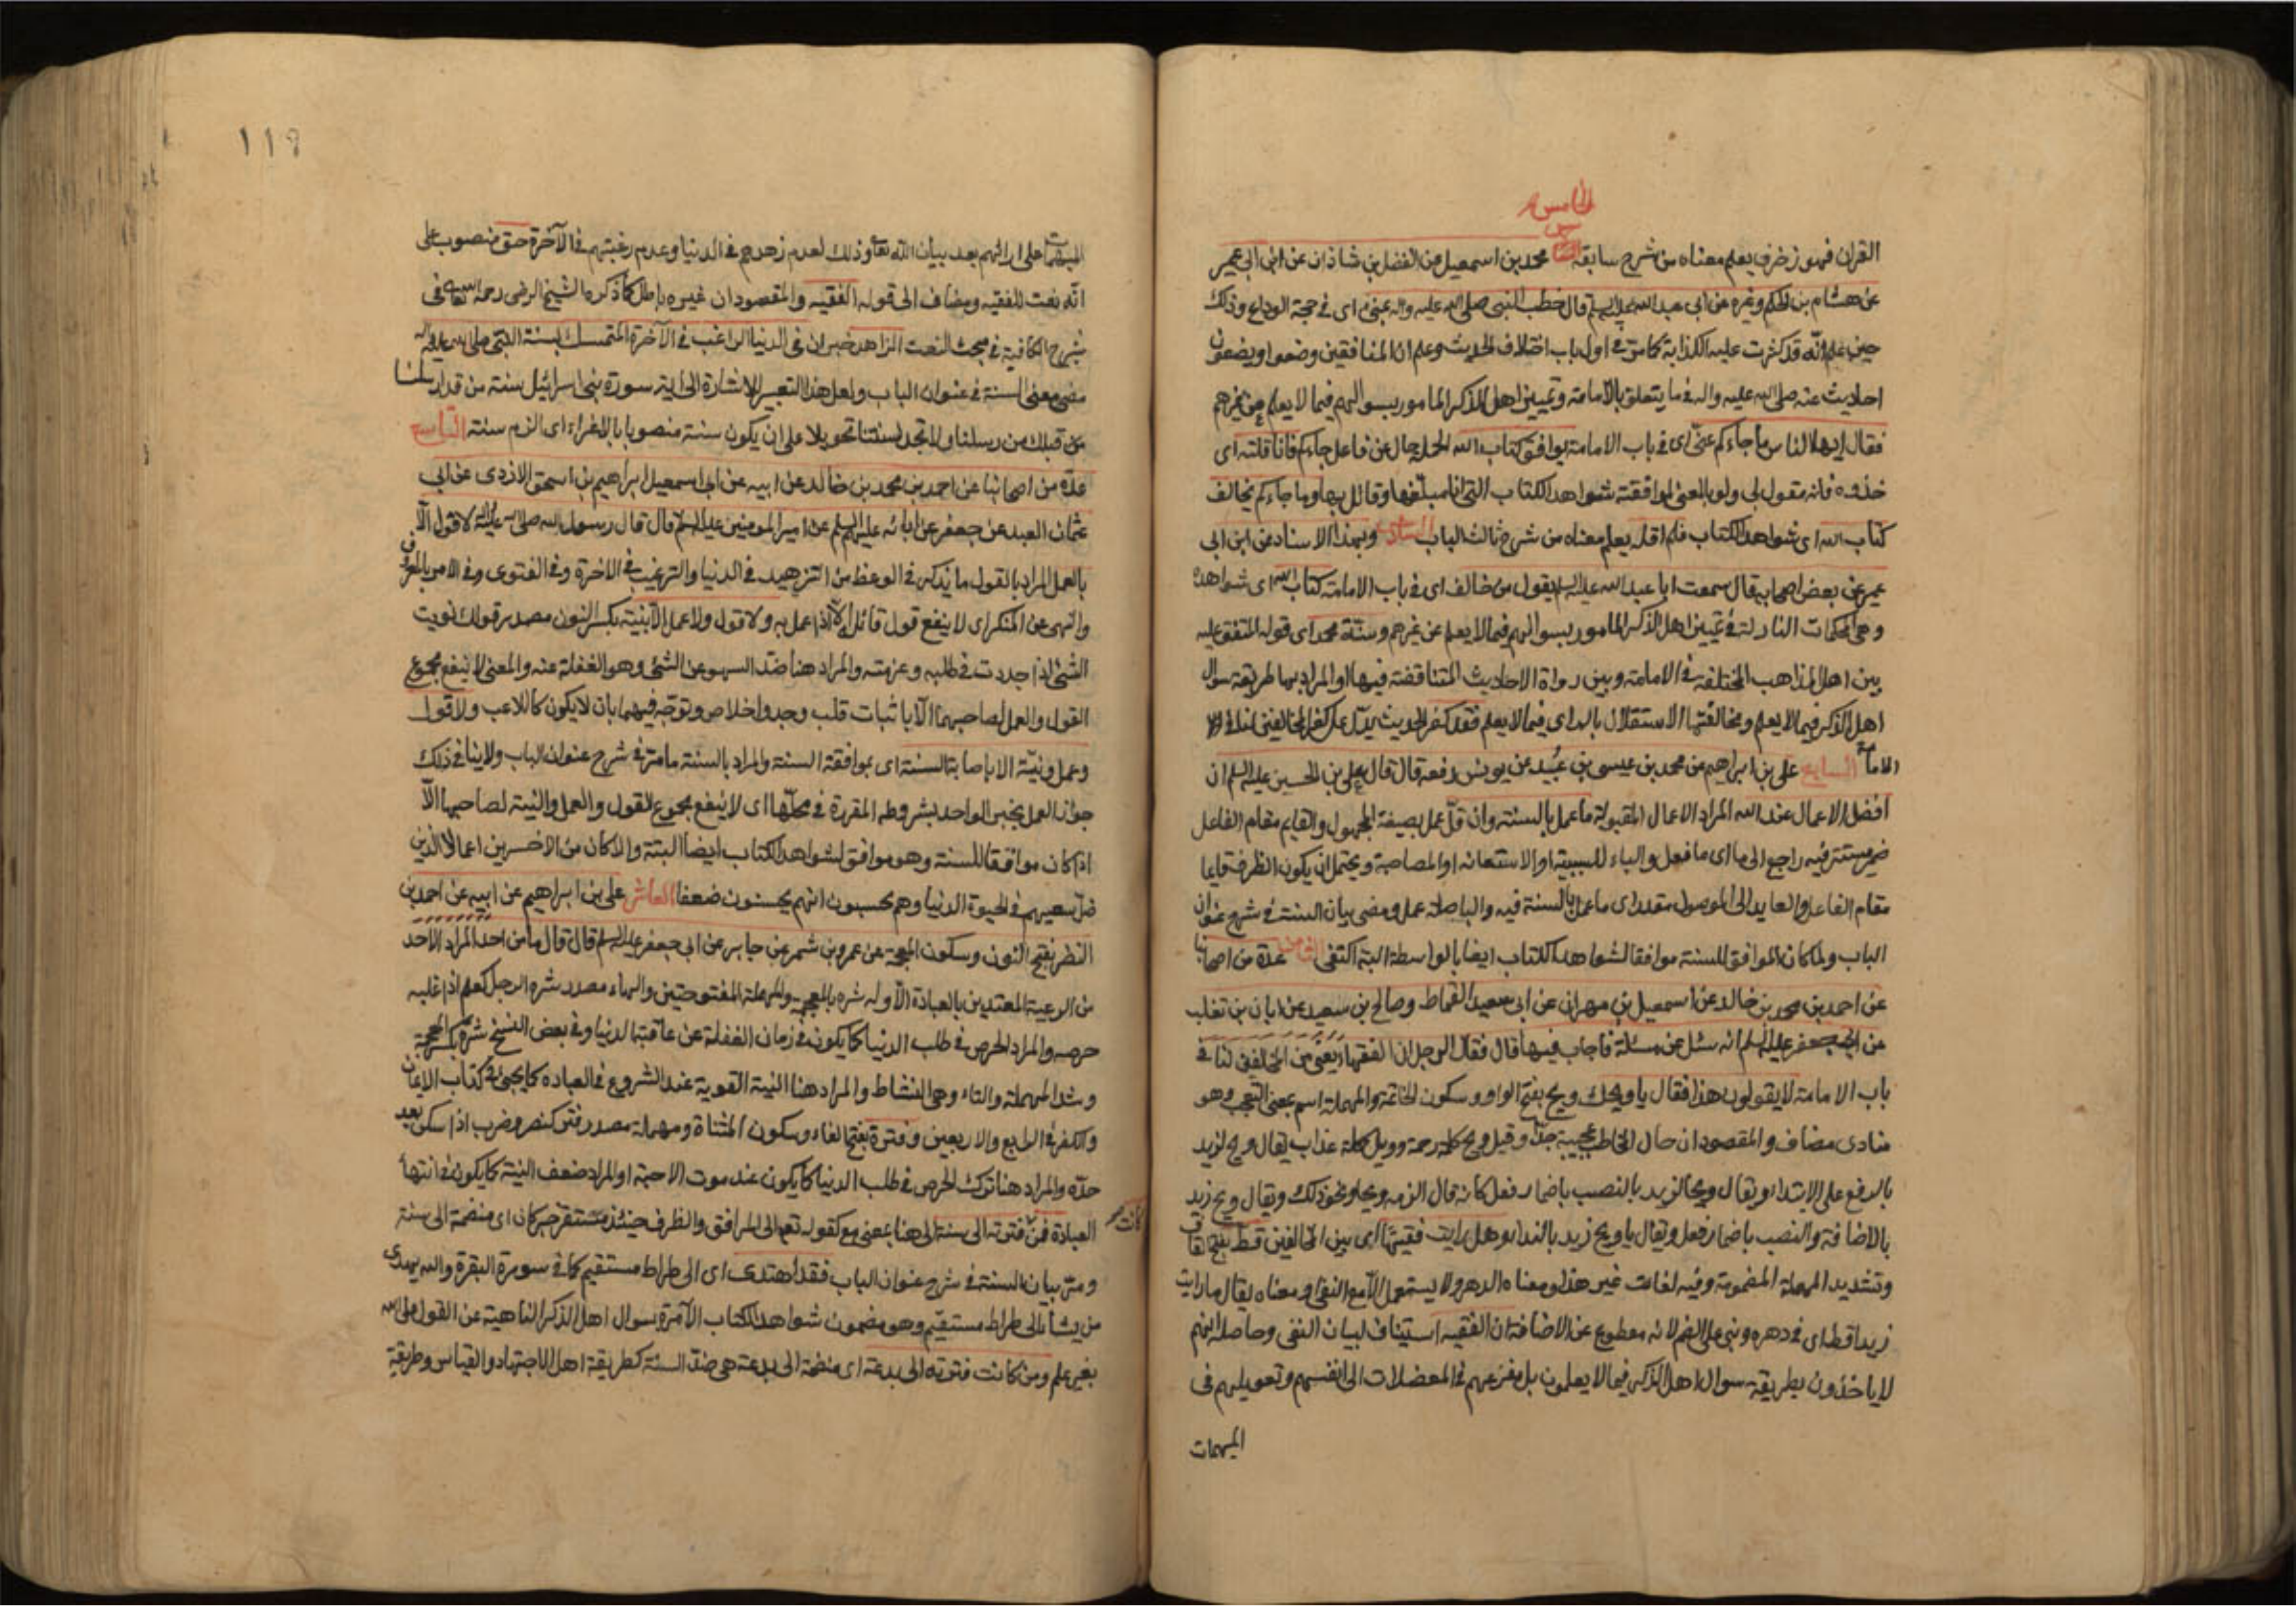 الخامس
القران فهو زخرف يعلم معناه من شرح سابقه محمد بن اسمعيل عن الفضل بن شاذان عن ابن ابي عمير
عن هشام بن الحكم وغيره عن ابي عبد الله عليه السلم قال خطب النبي صلى الله عليه واله بمنى اى في حجة الوداع وذلك
حين علم انّه قد كثرت عليه الكذابة كما مرّ في اول باب اختلاف الحديث وعلم ان المنافقين وضعوا ويضعون
احاديث عنه صلى الله عليه واله فيما يتعلق بالامامة وتعيين اهل الذكر المامور بسوالهم فيما لا يعلم من غيرهم
فقال ايها الناس ما جاءكم عنّي اى في باب الامامة يوافق كتاب الله الجملة حال عن فاعل جاءكم فانا قلته اى
خذوه فانه مقول لى ولو بالمعنى لموافقته شواهد الكتاب التي انا مبلّغها وقائل بها وما جاءكم يخالف
كتاب الله اى شواهد الكتاب فلم اقله يعلم معناه من شرح ثالث الباب السادس وبهذا الاسناد عن ابن ابي
عمير عن بعض اصحابه قال سمعت ابا عبد الله عليه السلم يقول من خالف اى في باب الامامة كتاب الله اى شواهده
وهي المحكمات النازلة في تعيين اهل الذكر المامور بسوالهم فيما لا يعلم عن غيرهم وسنّة محمد اى قوله المتفق عليه
بين اهل المذاهب المختلفة في الامامة وبين رواة الاحاديث المتناقضة فيها او المراد بها طريقة سوال
اهل الذكر فيما لا يعلم ومخالفتها الاستقلال بالراى فيما لا يعلم فقد كفر الحديث يدل على كفر المخالفين لنا في
الامامة السابع على بن ابراهيم عن محمد بن عيسى بن عُبيد عن يونس رفعه قال قال على بن الحسين عليه السلم ان
افضل الاعمال عند الله المراد الاعمال المقبولة ما عمل بالسنة وان قلّ عمل بصيغة المجهول والقايم مقام الفاعل
ضمير مستتر فيه راجع الى ما اى ما فعل والباء للسببية او الاستعانة او المصاحبة ويحتمل ان يكون الظرف قايما
مقام الفاعل والعايد الى الموصول مقدر اى ما عمل بالسنة فيه والباء صلة عمل ومضى بيان السنة في شرح عنوان
الباب ولما كان الموافق للسنة موافقا لشواهد الكتاب ايضا بالواسطة البتة اكتفى الثامن عدة من اصحابنا
عن احمد بن محمد بن خالد عن اسمعيل بن مهران عن ابي سعيد القماط وصالح بن سعيد عن ابان بن تغلب
عن ابي جعفر عليه السلم انه سئل عن مسئلة فاجاب فيها قال فقال الرجل ان الفقهاء يعني من المخالفين لنا في
باب الامامة لا يقولون هذا فقال يا ويحك ويح بفتح الواو وسكون الخاتمة والمهملة اسم بمعنى التعجب وهو
منادى مضاف والمقصود ان حال المخاطب عجيبة جدّا وقيل ويح كلمة رحمة وويل كلمة عذاب يقال ويح لزيد
بالرفع على الابتداء ويقال ويحا لزيد بالنصب باضمار فعل كانه قال الزمه ويحا ونحو ذلك ويقال ويح زيد
بالاضافة والنصب باضمار فعل ويقال يا ويح زيد بالنداء وهل رايت فقيها اى بين المخالفين قط بفتح القاف
وتشديد المهملة المضمومة وفيه لغات غير هذا ومعناه الدهر ولا يستعمل الا مع النفي او معناه يقال ما رايت
زيدا قط اى في دهره وبني على الضم لانه مقطوع عن الاضافة ان الفقيه استيناف لبيان النفي وحاصله انهم
لا ياخذون بطريقة سوال اهل الذكر فيما لا يعلمون بل مفزعهم في المعضلات الى انفسهم وتعويلهم في
المهمات
١١٩
المبهمات على ارائهم بعد بيان الله تعالى وذلك لعدم زهدهم في الدنيا وعدم رغبتهم في الآخرة حق منصوب على
انّه نعت للفقيه ومضاف الى قوله الفقيه والمقصود ان غيره باطل كما ذكره الشيخ الرضى رحمه الله تعالى في
شرح الكافية في مبحث النعت الزاهد خبر ان في الدنيا الراغب في الآخرة المتمسك بسنة النبيّ صلى الله عليه واله
مضى معنى السنة في عنوان الباب ولعل هذا التعبير للاشارة الى اية سورة بنى اسرائيل سنة من قد ارسلنا
من قبلك من رسلنا ولا تجد لسنتنا تحويلا على ان يكون سنة منصوبا بالاغراء اى الزم سنة التاسع
عدّة من اصحابنا عن احمد بن محمد بن خالد عن ابيه عن ابى اسمعيل ابراهيم بن اسحق الازدى عن ابي
عثمان العبد عن جعفر عن ابائه عليهم السلم عن امير المومنين عليه السلم قال قال رسول الله صلى الله عليه واله لا قول الّا
بالعمل المراد بالقول ما يذكر في الوعظ من التزهيد في الدنيا والترغيب في الاخرة وفي الفتوى وفي الامر بالمعروف
والنهى عن المنكر اى لا ينفع قول قائل الّا اذا عمل به ولا قول ولا عمل الّا بنية بكسر النون مصدر قولك نويت
الشئ اذا جددت في طلبه وعزمته والمراد هنا ضدّ السهو عن الشئ وهو الغفلة عنه والمعنى لا ينفع مجموع
القول والعمل لصاحبهما الّا باثبات قلب وجد واخلاص وتوجّه فيهما بان لا يكون كاللاعب ولا قول
وعمل ونيّة الا باصابة السنة اى بموافقة السنة والمراد بالسنة ما مرّ في شرح عنوان الباب ولا ينافى ذلك
جواز العمل بخبر الواحد بشروطه المقررة في محلّها اى لا ينفع مجموع القول والعمل والنية لصاحبها الّا
اذا كان موافقا للسنة وهو موافق لشواهد الكتاب ايضا البتة والا كان من الاخسرين اعمالا الذين
ضلّ سعيهم في الحيوة الدنيا وهم يحسبون انهم يحسنون صنعا العاشر على بن ابراهيم عن ابيه عن احمد بن
النضر بفتح النون وسكون المعجمة عن عمرو بن شمر عن جابر عن ابي جعفر عليه السلم قال قال ما من احد المراد الاحد
من الرعية المعتدين بالعبادة الّا وله شره بالمعجمة والمهملة المفتوحتين والهاء مصدر شره الرجل كعلم اذا غلبه
حرصه والمراد الحرص في طلب الدنيا كما يكون في زمان الغفلة عن عاقبة الدنيا وفي بعض النسخ شرّة بكسر المعجمة
وشد المهملة والتاء وهي النشاط والمراد هنا النية القوية عند الشروع في العبادة كما يجئ في كتاب الايمان
والكفر في الرابع والاربعين وفترة بفتح الفاء وسكون المثناة ومهملة مصدر فتر كنصر وضرب اذا سكن بعد
حدّة والمراد هنا ترك الحرص في طلب الدنيا كما يكون عند موت الاحبة او المراد ضعف النية كما يكون في انتهاء
العبادة فمن كانت فترته الى سنة الى هنا بمعنى مع كقوله تعالى الى المرافق والظرف حينئذ مستقر خبر كان اى منضمة الى سنة
ومرّ بيان السنة في شرح عنوان الباب فقد اهتدى اى الى صراط مستقيم كما في سورة البقرة والله يهدى
من يشاء الى صراط مستقيم وهو مضمون شواهد الكتاب الآمرة بسوال اهل الذكر الناهية عن القول على الله
بغير علم ومن كانت فترته الى بدعة اى منضمة الى بدعة هي ضدّ السنة كطريقة اهل الاجتهاد والقياس وطريقة